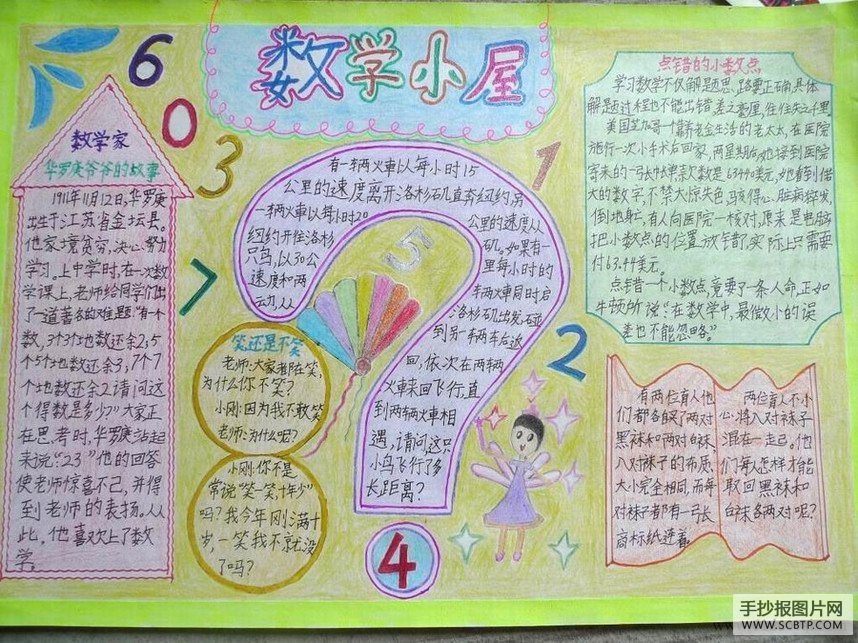 数学小屋
6
0
3
7
1
5
2
4
数学家
华罗庚爷爷的故事
1911年11月12日,华罗庚
出生于江苏省金坛县。
他家境贫穷,决心努力
学习。上中学时,在一次数
学课上,老师给同学们出
了一道著名的难题:“有一个
数,3个3个地数还余2,5个
5个地数还余3,7个7
个地数还余2请问这
个得数是多少?”大家正
在思考时,华罗庚站起
来说:“23”他的回答
使老师惊喜不已,并得
到老师的表扬。从
此,他喜欢上了数
学。
有一辆火車以每小时15
公里的速度离开洛杉矶直奔纽约,另
一辆火車以每小时20
公里的速度从
纽约开往洛杉
矶。如果有一
只鸟,以30公
里每小时的
速度和两
辆火車同时启
动,从
洛杉矶出发,碰
到另一辆车后返
回,依次在两辆
火車来回飞行,直
到两辆火車相
遇,请问,这只
小鸟飞行了多
长距离?
笑还是不笑
老师:大家都在笑,
为什么你不笑?
小刚:因为我不敢笑
老师:为什么呢?
小刚:你不是
常说“笑一笑,十年少”
吗?我今年刚满十
岁,一笑我不就没
了吗?
点错的小数点
学习数学不仅解题思路要正确,具体
解题过程也不能出错,差之毫厘,往往失之千里。
美国芝加哥一个靠养老金生活的老太太,在医院
施行一次小手术后回家,两星期后,她接到医院
寄来的一张帐单,款数是63440美元,她看到偌
大的数字,不禁大惊失色,骇得心脏病猝发,
倒地身亡,有人向医院一核对,原来是电脑
把小数点的位置放错了,实际上只需要
付63.44美元。
点错一个小数点,竟要了一条人命,正如
牛顿所说:“在数学中,最微小的误
差也不能忽略。”
有两位盲人,他
们都各自买了两对
黑袜和两对白袜,
八对袜子的布质、
大小完全相同,而每
对袜子都有一张
商标纸连着。
两位盲人不小
心将八对袜子
混在一起。他
们每人怎样才能
取回黑袜和
白袜各两对呢?
手抄报图片网
WWW.SCBTP.COM